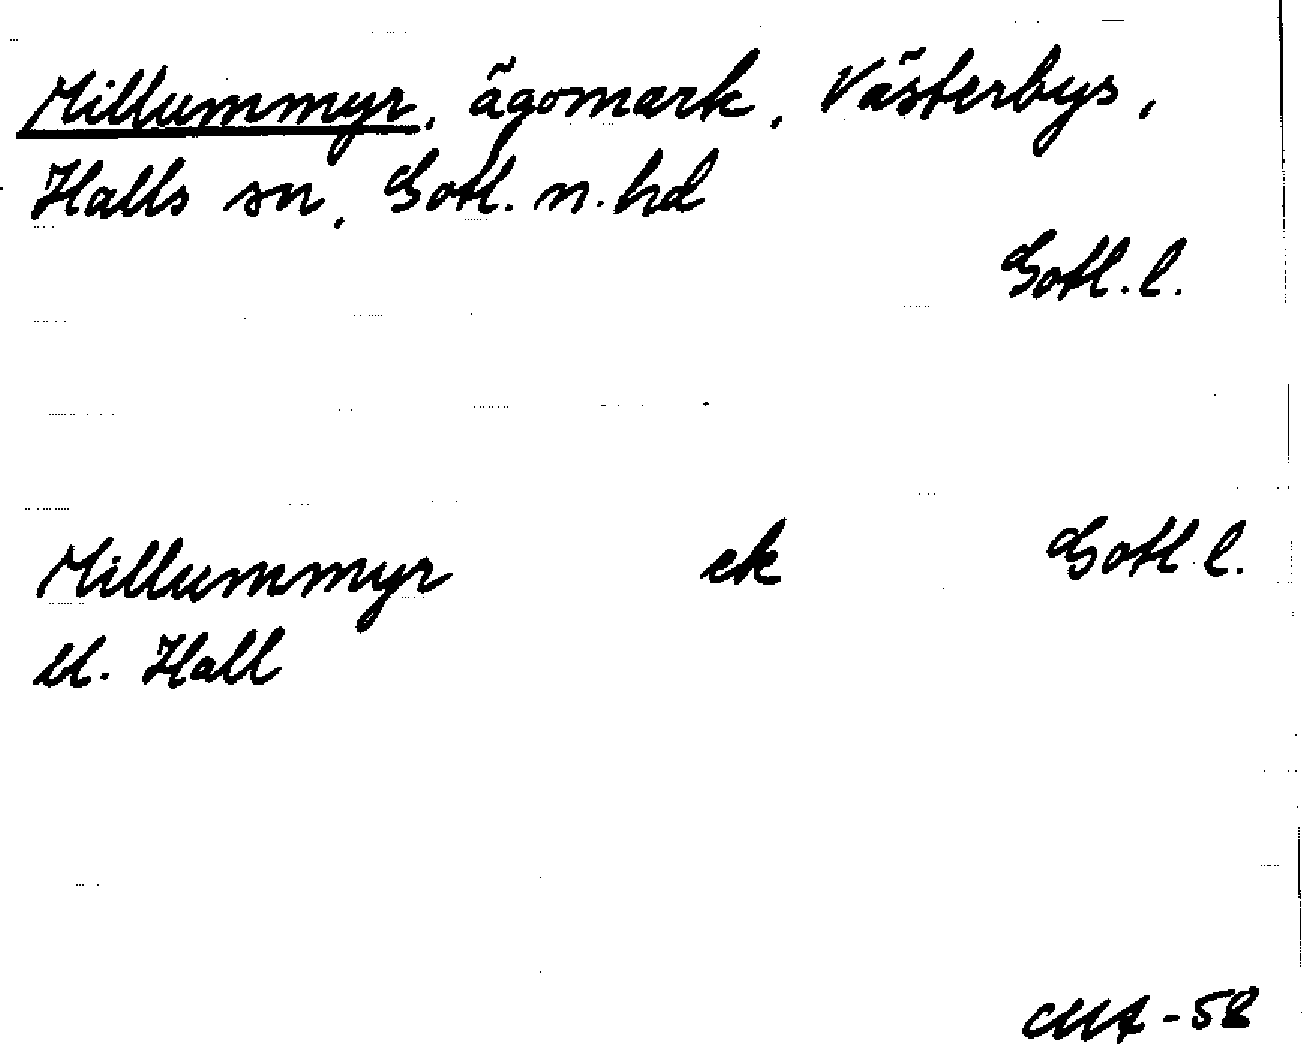 Millummyr, ägomark, Västerbys,
Halls sn, Gotl. n. hd
Gotl. l.
Millummyr ek Gotl. l.
Hall
-58